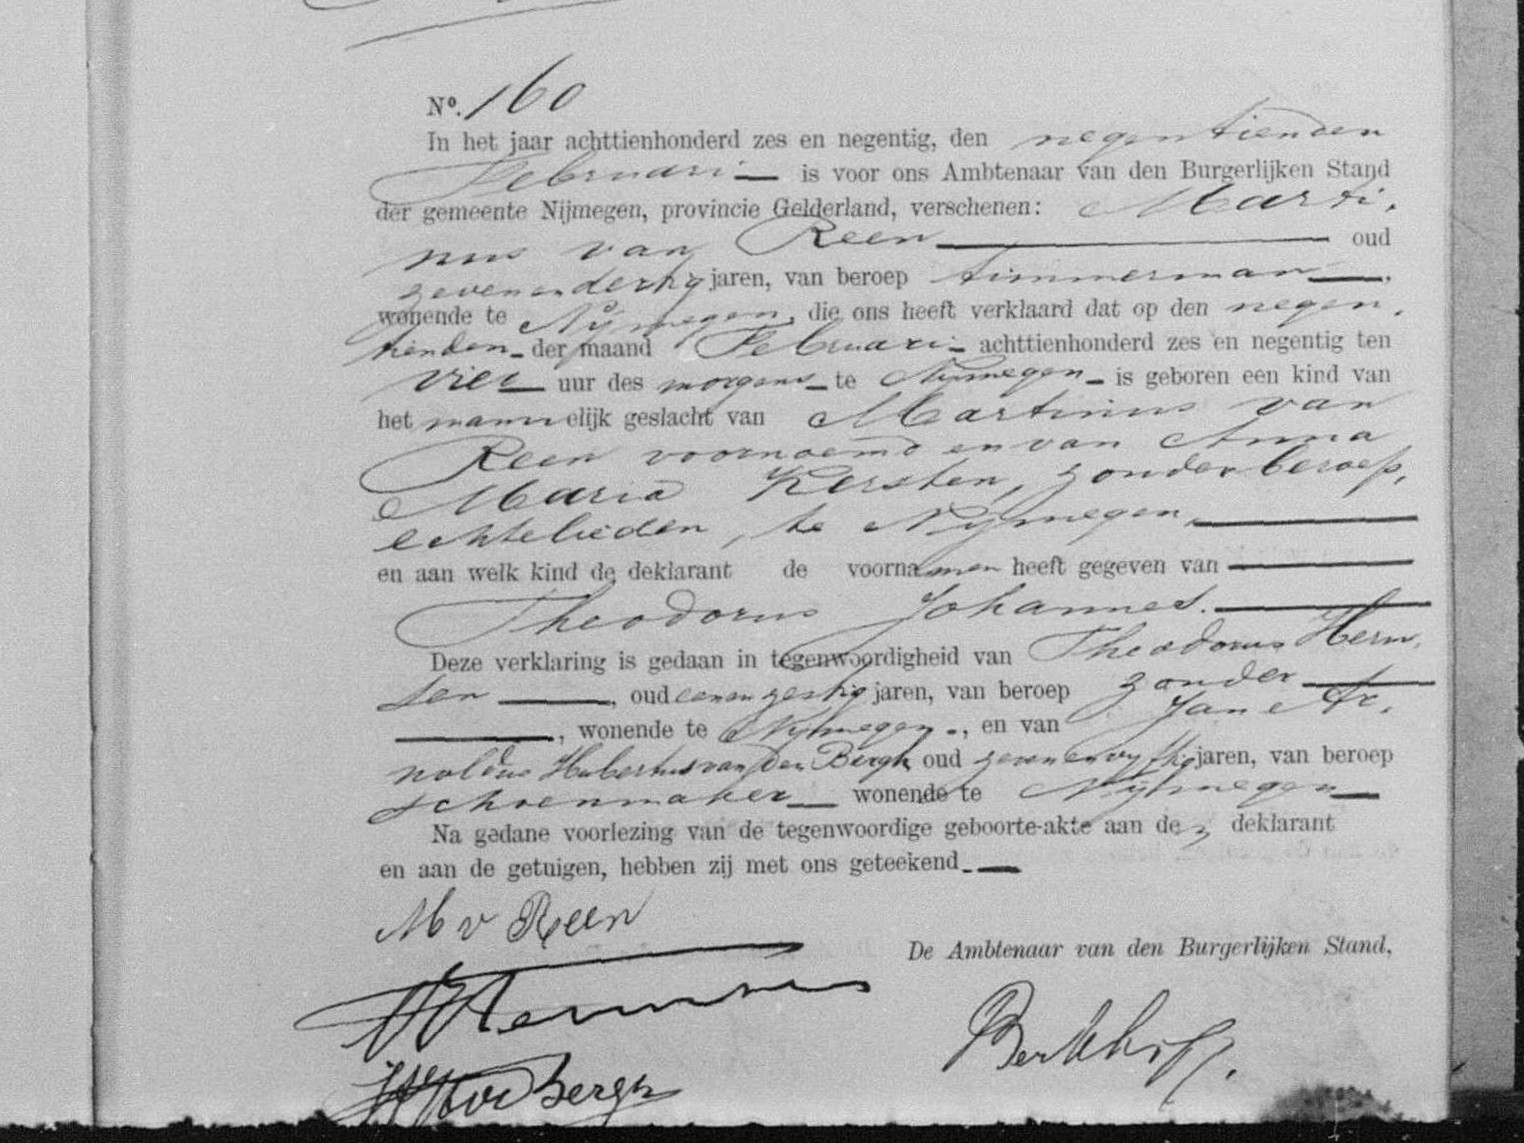 Nº. 160
In het jaar achttienhonderd zes en negentig, den negentienden
Februari — is voor ons Ambtenaar van den Burgerlijken Stand
der gemeente Nijmegen, provincie Gelderland, verschenen: Marti-
nus van Reen — oud
zevenendertig jaren, van beroep timmerman —,
wonende te Nijmegen, die ons heeft verklaard dat op den negen-
tienden - der maand Februari - achttienhonderd zes en negentig ten
vier — uur des morgens - te Nijmegen - is geboren een kind van
het mannelijk geslacht van Martinus van
Reen voornoemd en van Anna
Maria Kersten, zonder beroep,
echtelieden, te Nijmegen, —
en aan welk kind de deklarant de voornamen heeft gegeven van —
Theodorus Johannes. —
Deze verklaring is gedaan in tegenwoordigheid van Theodorus Herm-
sen —, oud eenenzestig jaren, van beroep zonder —
—, wonende te Nijmegen -, en van Jan Ar-
noldus Hubertus van den Bergh oud zevenenvyftig jaren, van beroep
schoenmaker — wonende te Nijmegen —
Na gedane voorlezing van de tegenwoordige geboorte-akte aan de deklarant
en aan de getuigen, hebben zij met ons geteekend. —
M v Reen
De Ambtenaar van den Burgerlijken Stand,
Hermsen
vd Bergh
Berkhoff.